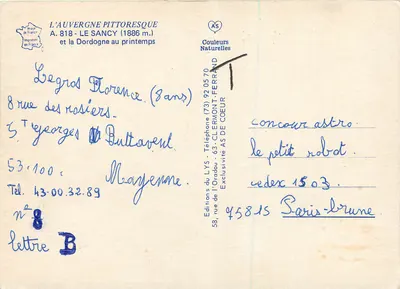 L'AUVERGNE PITTORESQUE
A. 818 - LE SANCY (1886 m.)
et la Dordogne au printemps
AS
Couleurs
Naturelles
Legros Florence. (8 ans)
8 rue des rosiers.
S^T Georges Buttavent.
53.100. Mayenne.
Tél. 43.00.32.89
n° 8
lettre B
Editions du LYS - Téléphone (73) 92 05 70
58, rue de l'Oradou - 63 - CLERMONT-FERRAND
Exclusivité AS DE COEUR
T
concour astro.
le petit robot.
cedex 1503.
75815 Paris-brune.